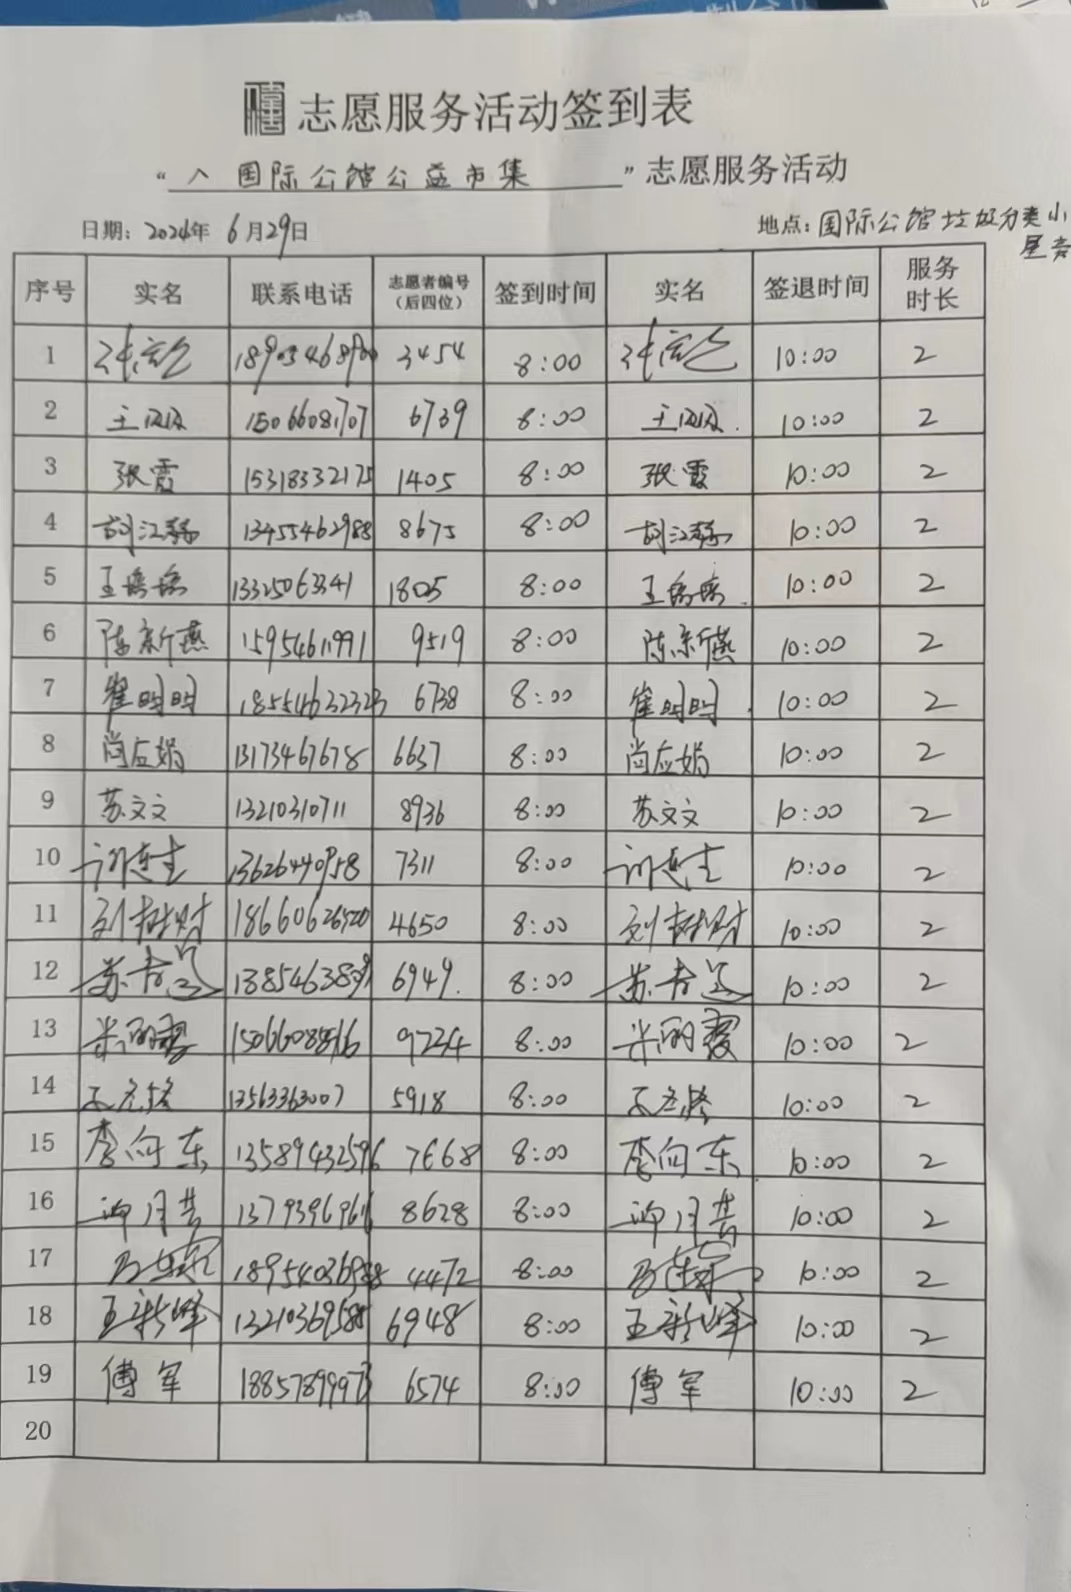 志愿服务活动签到表
“入 国际公馆公益市集”志愿服务活动
日期：2024年 6月29日 地点：国际公馆垃圾分类小屋旁
序号 实名 联系电话 志愿者编号（后四位） 签到时间 实名 签退时间 服务时长
1 3454 8:00 10:00 2
2 15066081707 6739 8:00 10:00 2
3 张霞 15318332175 1405 8:00 张霞 10:00 2
4 13455462988 8675 8:00 10:00 2
5 13325063341 1805 8:00 10:00 2
6 陈新燕 15954611991 9519 8:00 陈新燕 10:00 2
7 崔明明 18554632323 6738 8:00 崔明明 10:00 2
8 尚应娟 13173467678 6637 8:00 尚应娟 10:00 2
9 苏文文 13210310711 8936 8:00 苏文文 10:00 2
10 13626440958 7311 8:00 10:00 2
11 刘树财 18660626520 4650 8:00 刘树财 10:00 2
12 6949 8:00 10:00 2
13 9234 8:00 10:00 2
14 13563363007 5918 8:00 10:00 2
15 李向东 13589432596 7668 8:00 李向东 10:00 2
16 8628 8:00 10:00 2
17 4472 8:00 10:00 2
18 王新峰 13210369588 6948 8:00 王新峰 10:00 2
19 傅军 18857899973 6574 8:00 傅军 10:00 2
20